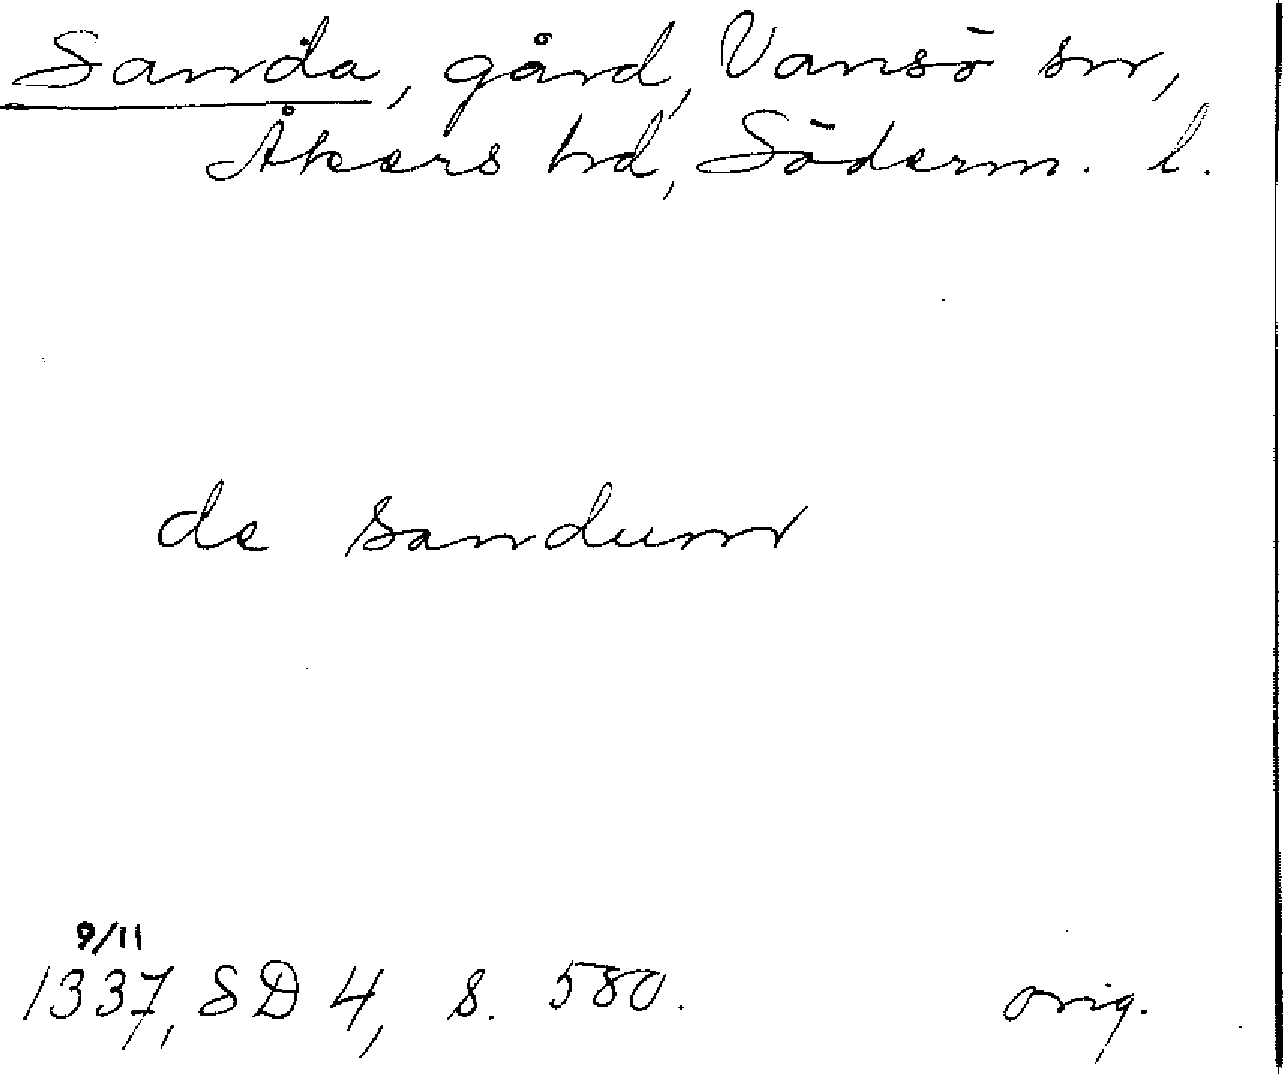 Sanda, gård, Vansö sn,
Åkers hd, Söderm. l.
de sandum
9/11
1337, SD 4, s. 580.
orig.